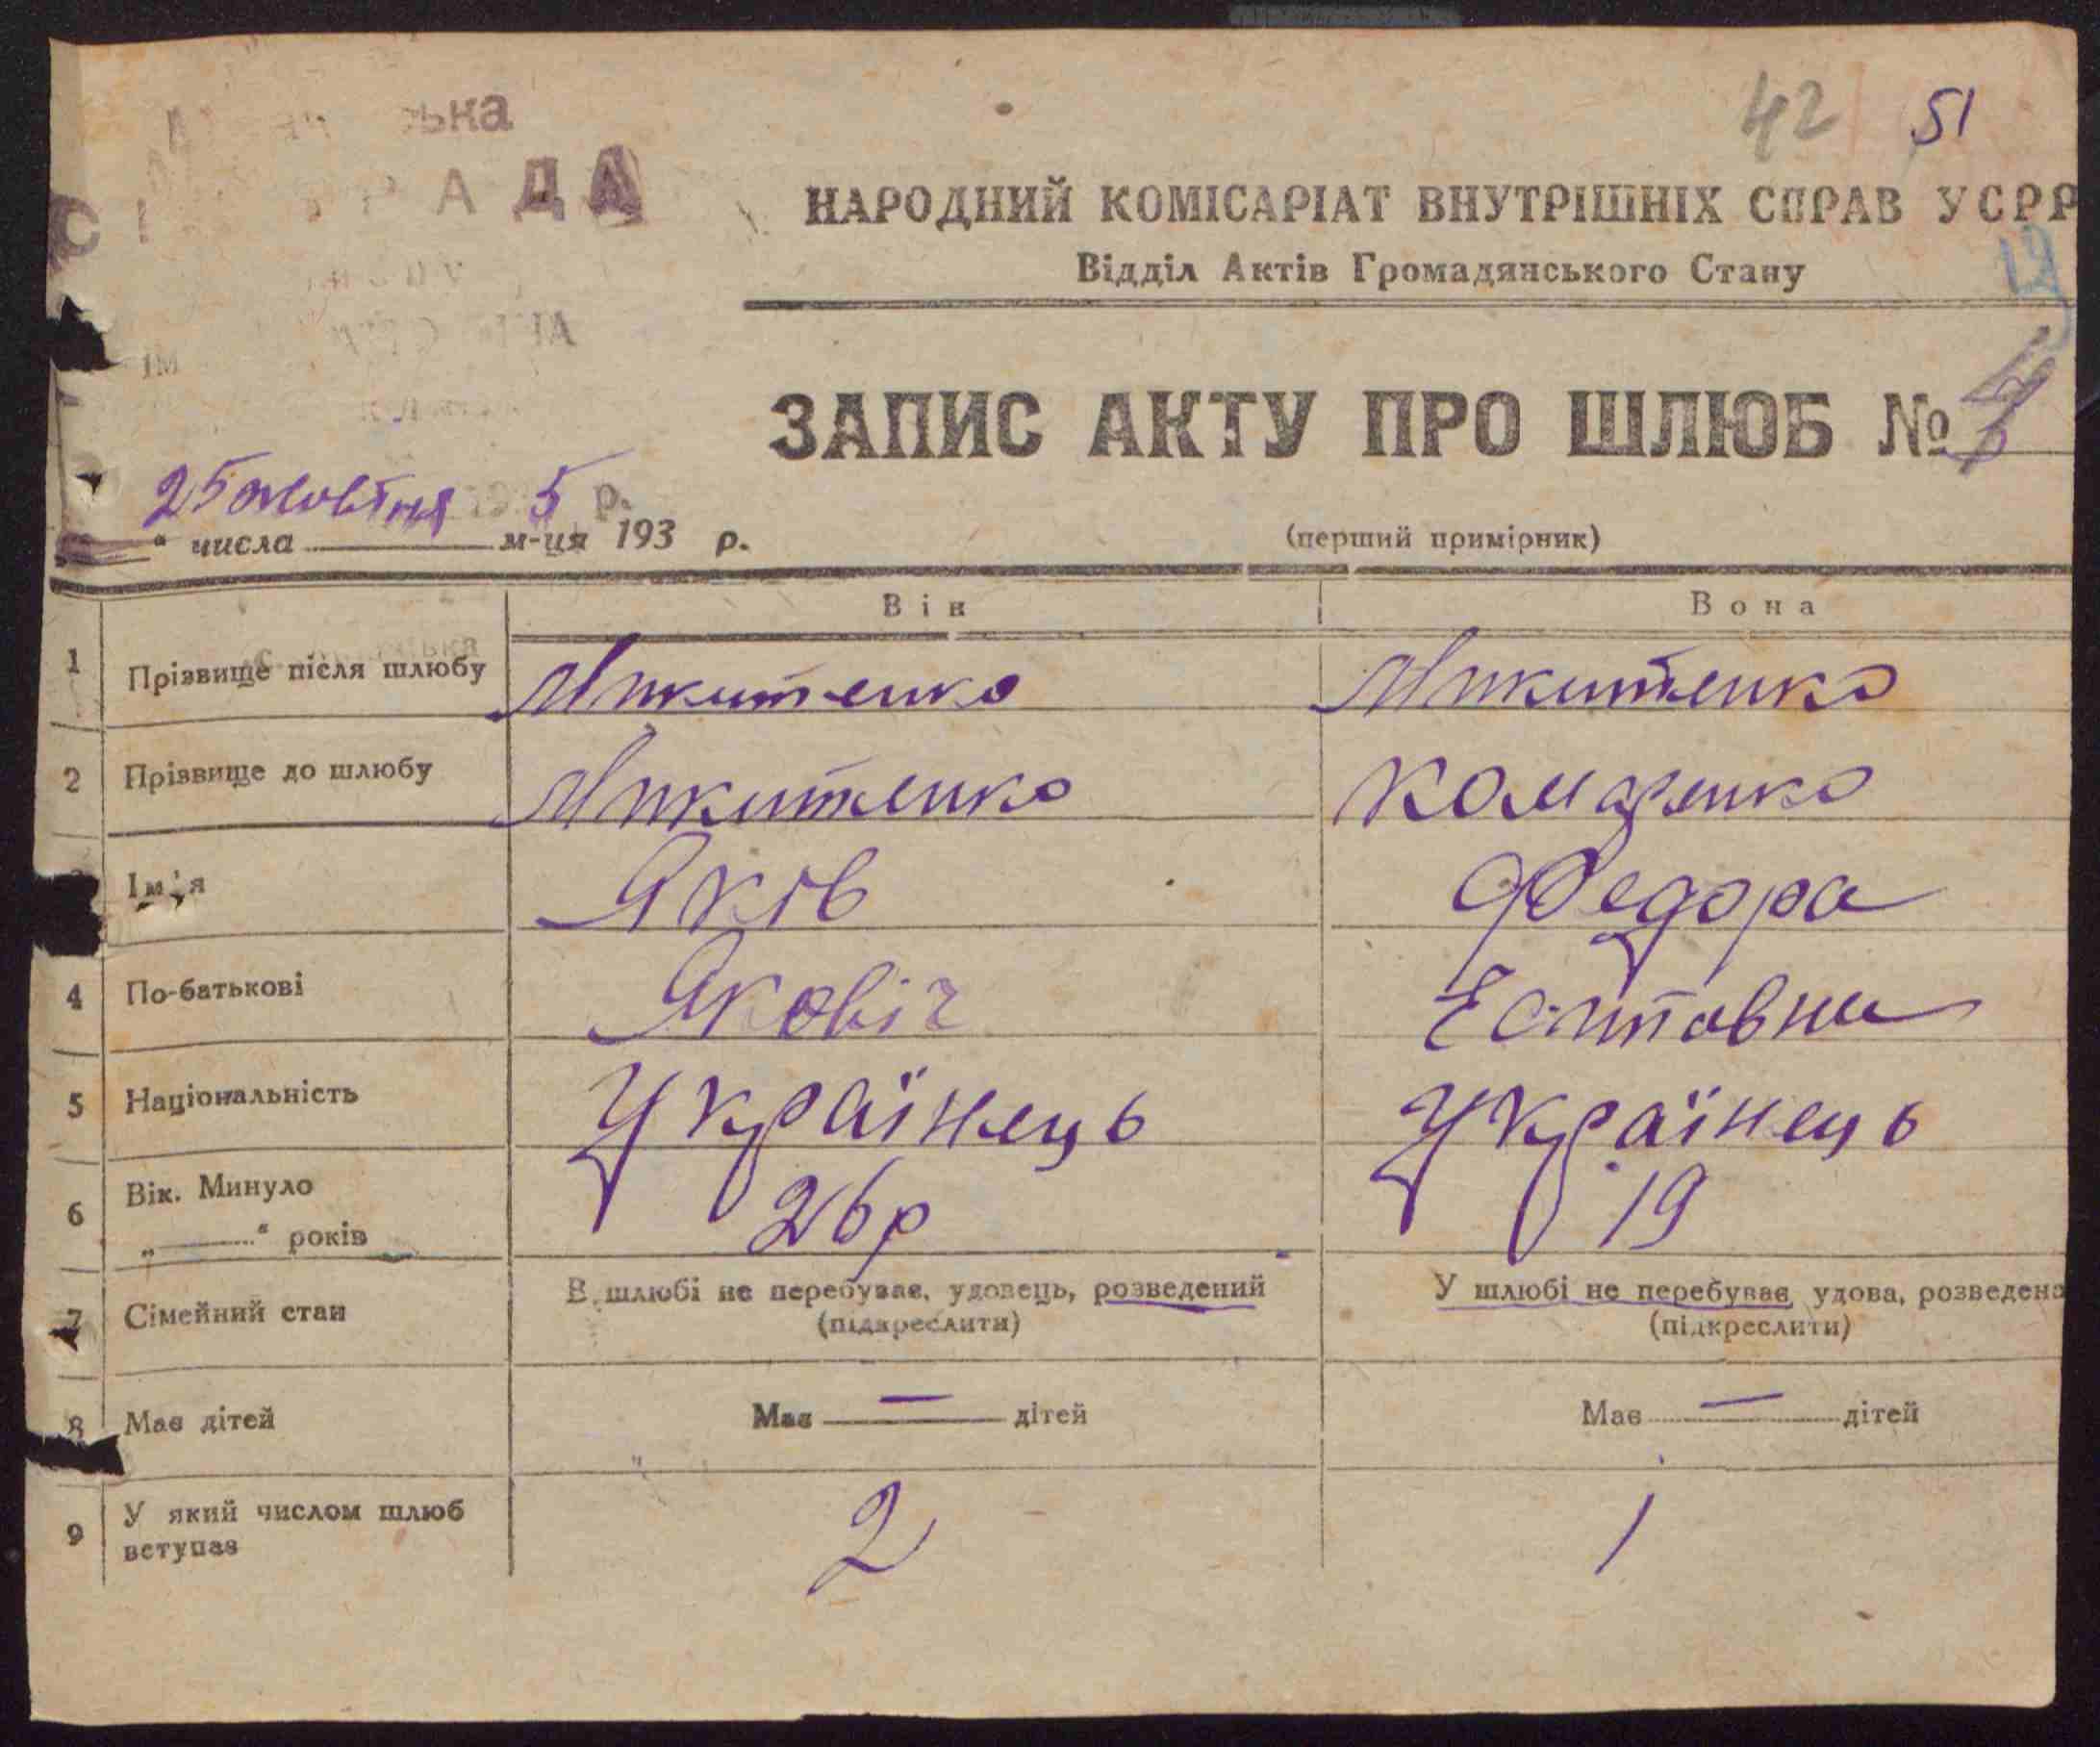 42 51
ька
РАДА
НАРОДНИЙ КОМІСАРІАТ ВНУТРІШНІХ СПРАВ УСРР
Відділ Актів Громадянського Стану
19
ЗАПИС АКТУ ПРО ШЛЮБ №
25 жовтня 5 р.
" числа м-ця 193 р.
(перший примірник)
Він Вона
1 Прізвище після шлюбу Микитенко Микитенко
2 Прізвище до шлюбу Микитенко Комаренко
3 Ім'я Яків Федора
4 По-батькові Яковіч Есиповна
5 Національність Українець Українець
6 Вік. Минуло
„ " років 26 р 19
7 Сімейний стан В шлюбі не перебуває, удовець, розведений У шлюбі не перебуває, удова, розведена
(підкреслити) (підкреслити)
8 Має дітей Має — дітей Має — дітей
9 У який числом шлюб
вступає 2 1